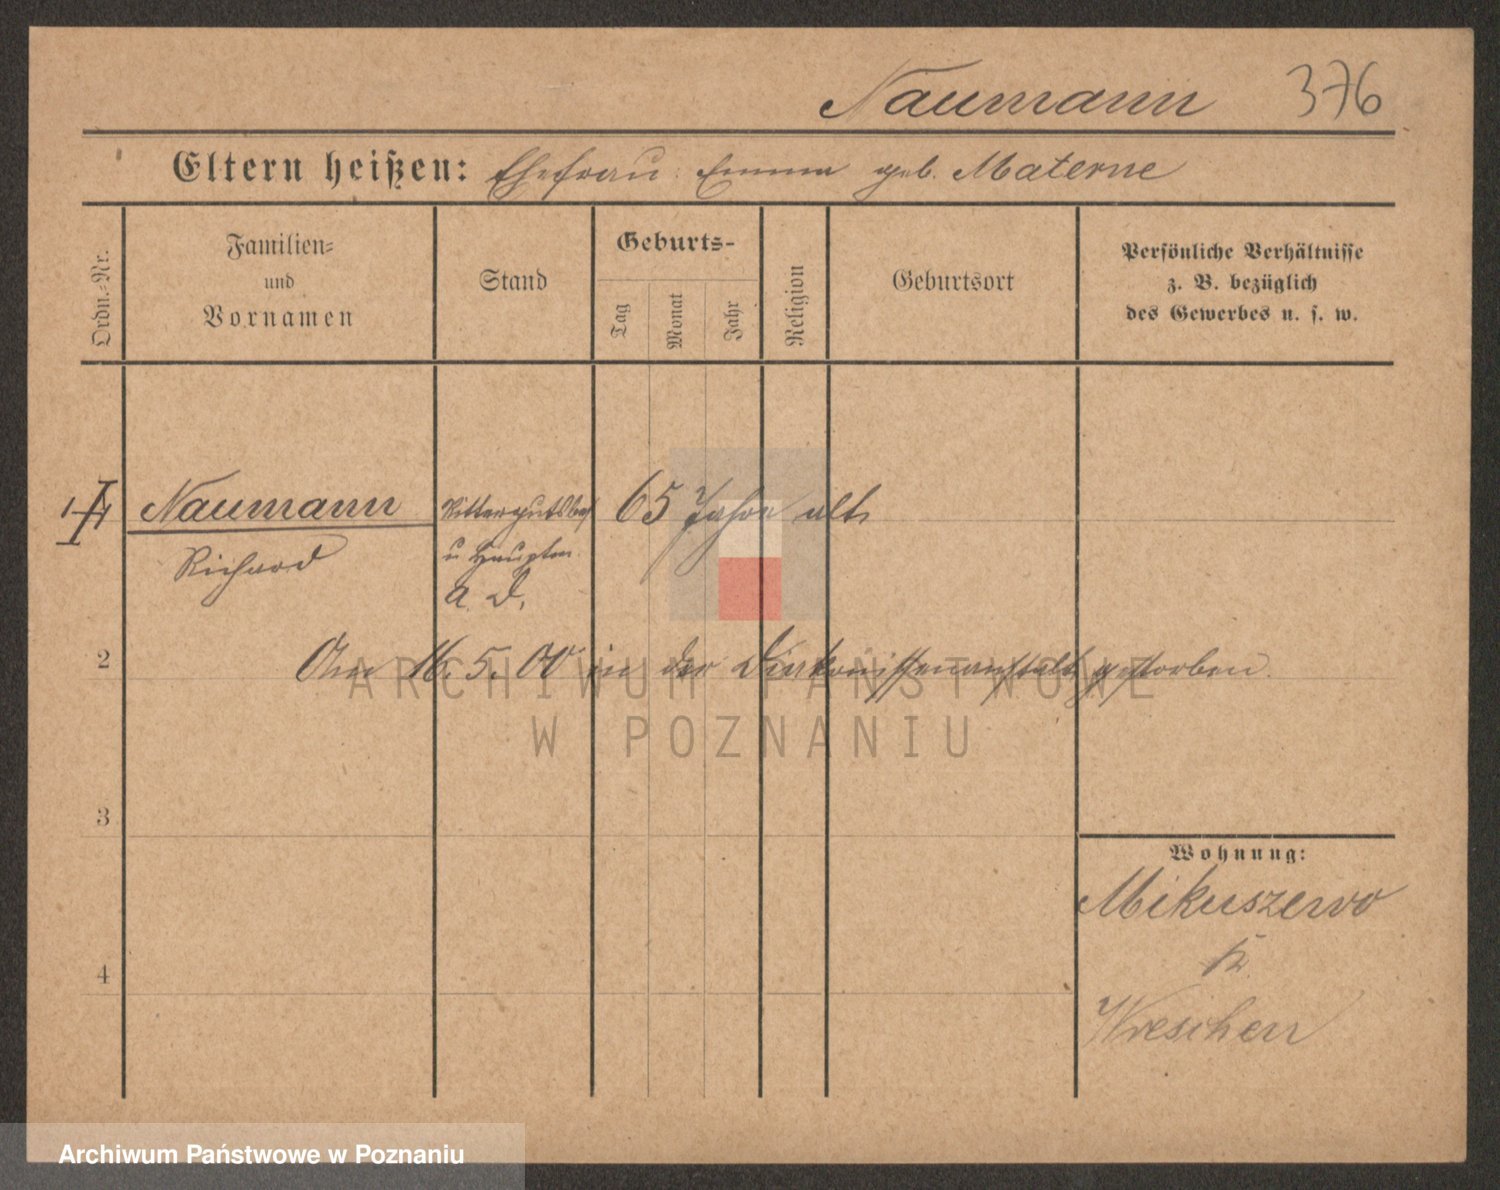 Naumann 376
Eltern heißen: Ehefrau: Emma geb. Materne
Ordn.-Nr.
Familien-
und
Vornamen
Stand
Geburts-
Tag
Monat
Jahr
Religion
Geburtsort
Persönliche Verhältnisse
z. B. bezüglich
des Gewerbes u. s. w.
1 Naumann Rittergutsbes 65 Jahre alt
Richard u Hauptm.
a. D.
2
Am 16. 5. 00 in der Diakonissenanstalt gestorben.
ARCHIWUM PAŃSTWOWE
W POZNANIU
3
Wohnung:
Mikuszewo
4
Wreschen
Archiwum Państwowe w Poznaniu